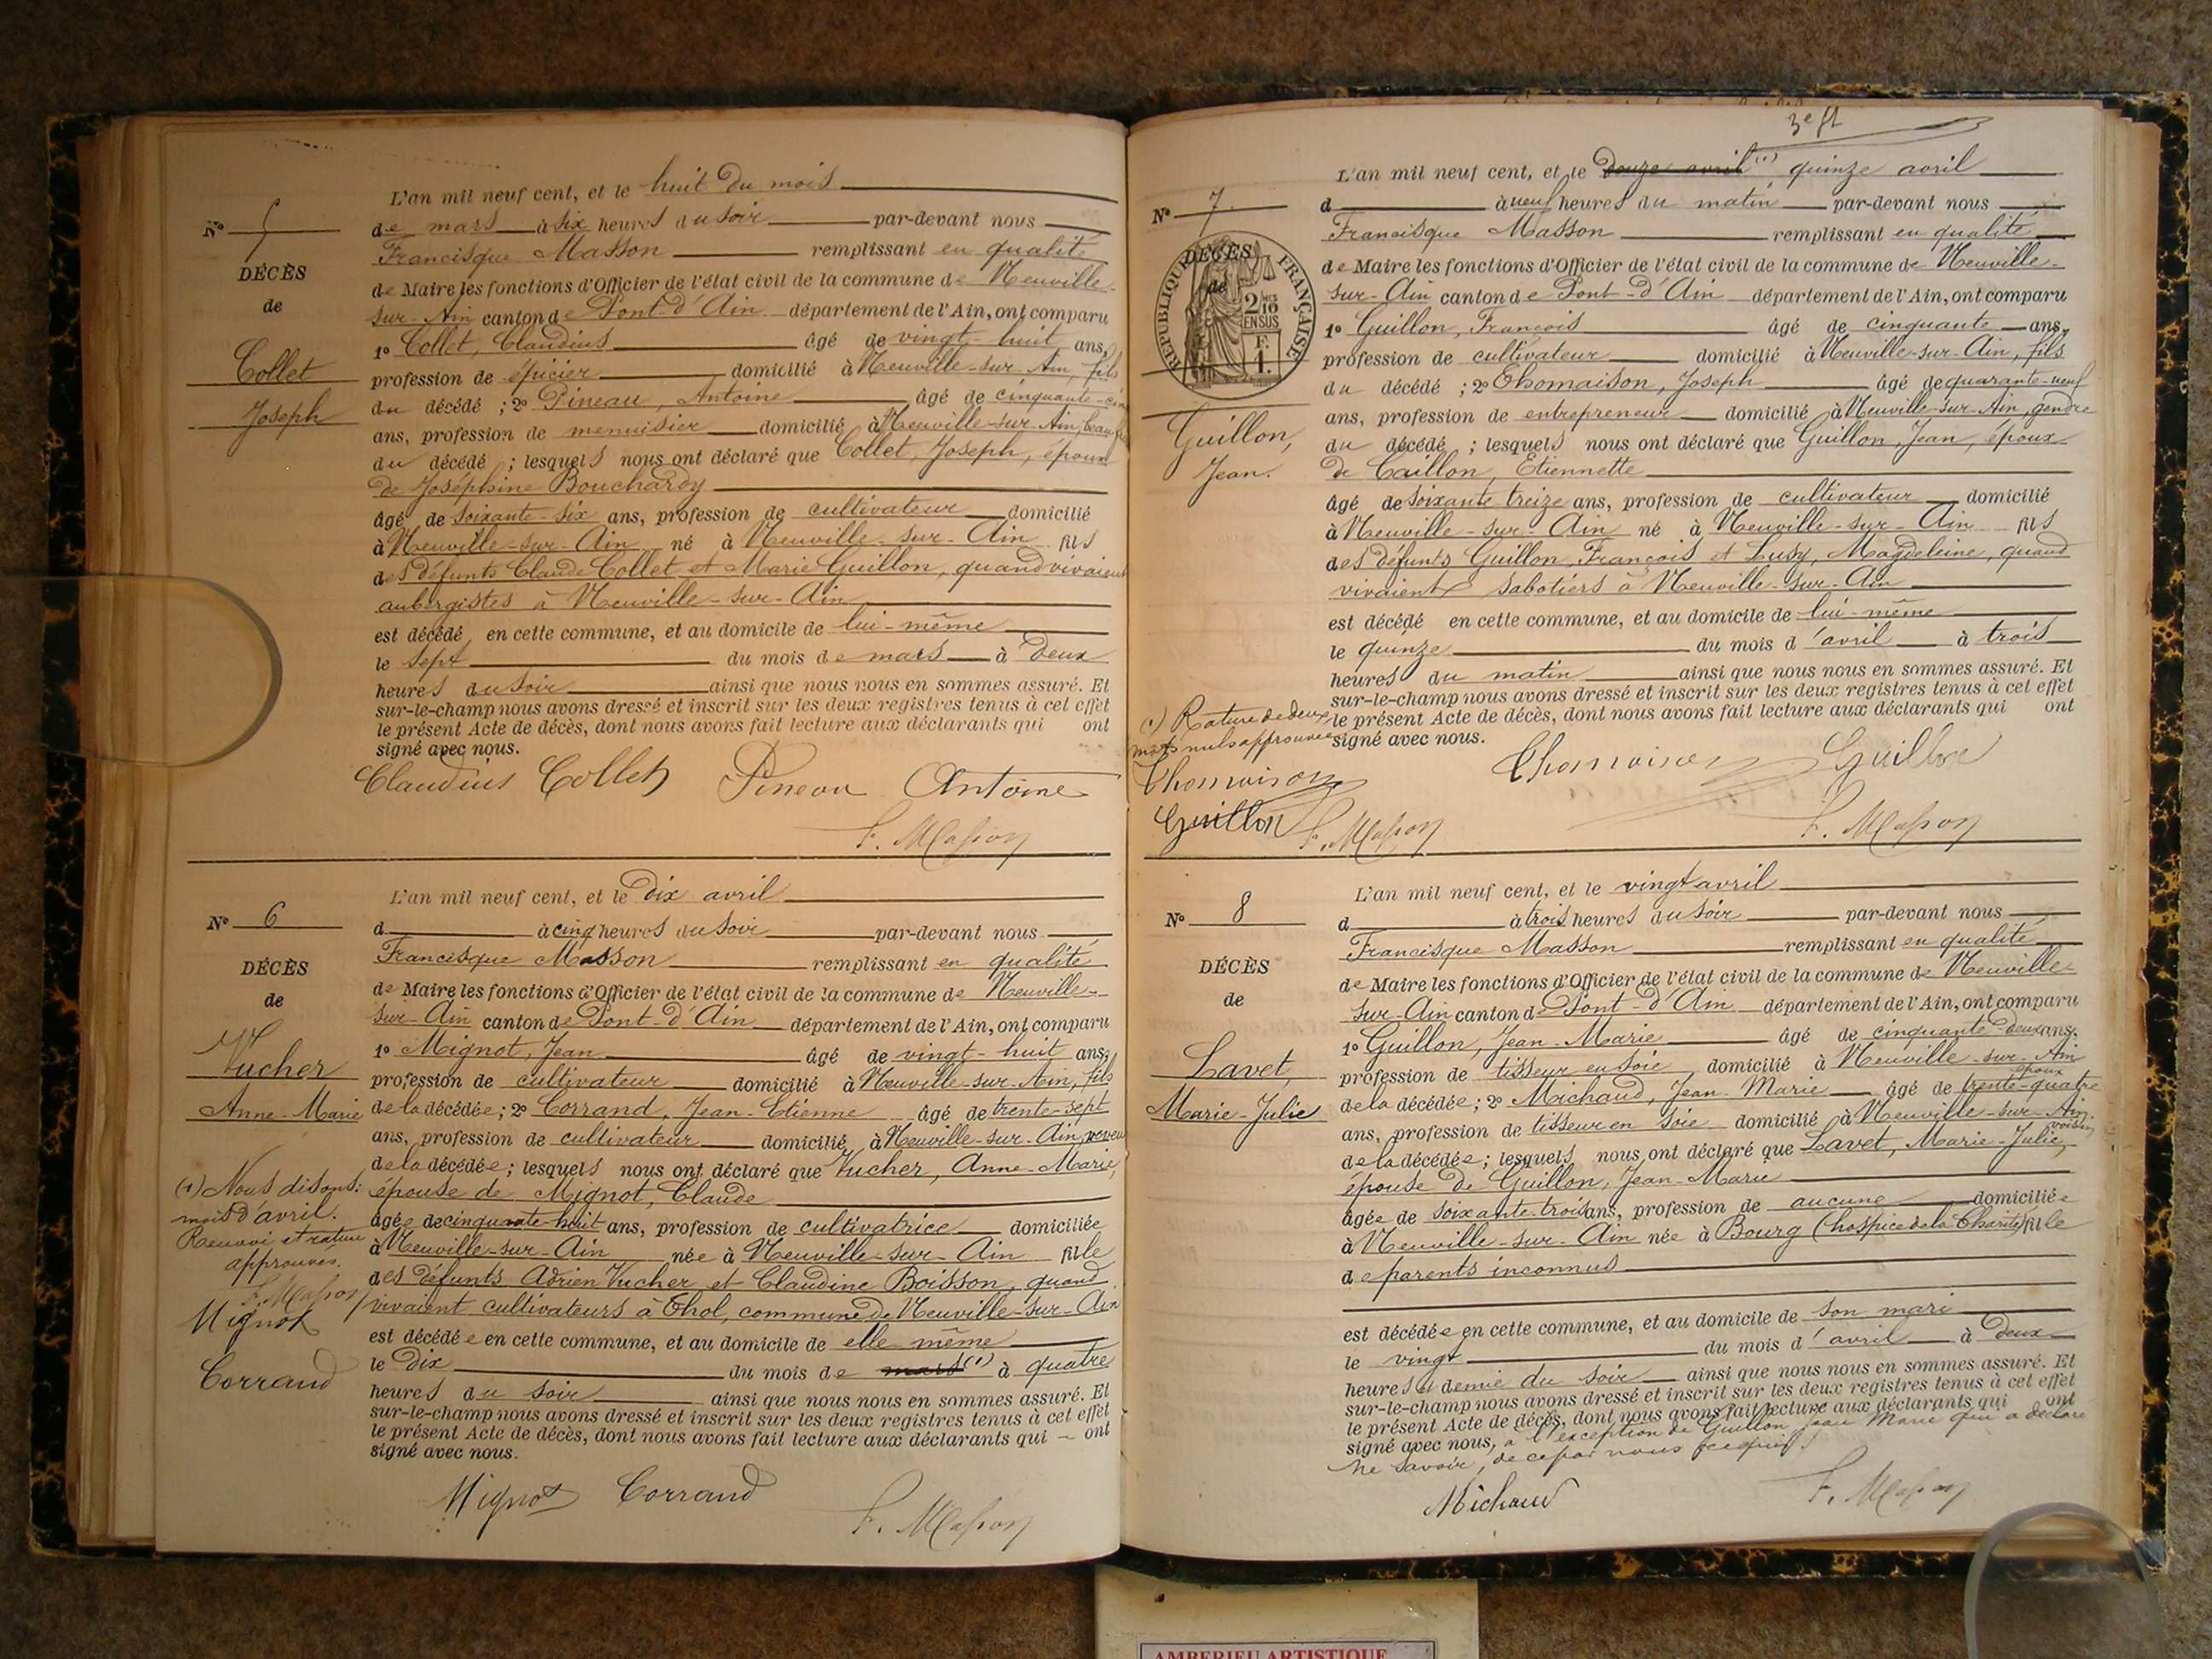 N° 5
DÉCÈS
de
Collet
Joseph
L'an mil neuf cent, et le huit du mois
de mars à six heures du soir par-devant nous
Francisque Masson remplissant en qualité
de Maire les fonctions d'Officier de l'état civil de la commune de Neuville-
sur-Ain canton de Pont-d'Ain département de l'Ain, ont comparu
1° Collet, Claudius âgé de vingt-huit ans,
profession de épicier domicilié à Neuville-sur-Ain, fils
du décédé ; 2° Pineau, Antoine âgé de cinquante-cinq
ans, profession de menuisier domicilié à Neuville-sur-Ain, beau
du décédé ; lesquels nous ont déclaré que Collet, Joseph, époux
de Joséphine Bouchardy
âgé de soixante-six ans, profession de cultivateur domicilié
à Neuville-sur-Ain né à Neuville-sur-Ain fils
des défunts Claude Collet et Marie Guillon, quand vivaient
aubergistes à Neuville-sur-Ain
est décédé en cette commune, et au domicile de lui-même
le sept du mois de mars à deux
heures du soir ainsi que nous nous en sommes assuré. Et
sur-le-champ nous avons dressé et inscrit sur les deux registres tenus à cet effet
le présent Acte de décès, dont nous avons fait lecture aux déclarants qui ont
signé avec nous.
Claudius Collet Pineau Antoine
F. Masson
N° 6
DÉCÈS
de
Vucher
Anne-Marie
(1) Nous disons:
mois d'avril.
Renvoi et rature
approuvés.
F. Masson
Mignot
Corrand
L'an mil neuf cent, et le dix avril
d à cinq heures du soir par-devant nous
Francisque Masson remplissant en qualité
de Maire les fonctions d'Officier de l'état civil de la commune de Neuville-
sur-Ain canton de Pont-d'Ain département de l'Ain, ont comparu
1° Mignot, Jean âgé de vingt-huit ans,
profession de cultivateur domicilié à Neuville-sur-Ain, fils
de la décédée ; 2° Corrand, Jean-Etienne âgé de trente-sept
ans, profession de cultivateur domicilié à Neuville-sur-Ain, neveu
de la décédée ; lesquels nous ont déclaré que Vucher, Anne-Marie,
épouse de Mignot, Claude
âgée de cinquante-huit ans, profession de cultivatrice domiciliée
à Neuville-sur-Ain née à Neuville-sur-Ain fille
des défunts Adrien Vucher et Claudine Boisson, quand
vivaient cultivateurs à Thol, commune de Neuville-sur-Ain
est décédée en cette commune, et au domicile de elle même
le dix du mois de mars (1) à quatre
heures du soir ainsi que nous nous en sommes assuré. Et
sur-le-champ nous avons dressé et inscrit sur les deux registres tenus à cet effet
le présent Acte de décès, dont nous avons fait lecture aux déclarants qui ont
signé avec nous.
Mignot Corrand
F. Masson
N° 7
DÉCÈS
de
RÉPUBLIQUE FRANÇAISE
2/10 EN SUS
F. 1.
Guillon,
Jean.
L'an mil neuf cent, et le douze avril (1) quinze avril
d à neuf heures du matin par-devant nous
Francisque Masson remplissant en qualité
de Maire les fonctions d'Officier de l'état civil de la commune de Neuville-
sur-Ain canton de Pont-d'Ain département de l'Ain, ont comparu
1° Guillon, François âgé de cinquante ans,
profession de cultivateur domicilié à Neuville-sur-Ain, fils
du décédé ; 2° Thomaison, Joseph âgé de quarante-neuf
ans, profession de entrepreneur domicilié à Neuville-sur-Ain, gendre
du décédé ; lesquels nous ont déclaré que Guillon, Jean, époux
de Caillon, Etiennette
âgé de soixante treize ans, profession de cultivateur domicilié
à Neuville-sur-Ain né à Neuville-sur-Ain fils
des défunts Guillon, François et Lusy, Magdeleine, quand
vivaient sabotiers à Neuville-sur-Ain
est décédé en cette commune, et au domicile de lui-même
le quinze du mois d'avril à trois
heures du matin ainsi que nous nous en sommes assuré. Et
sur-le-champ nous avons dressé et inscrit sur les deux registres tenus à cet effet
le présent Acte de décès, dont nous avons fait lecture aux déclarants qui ont
signé avec nous.
(1) Rature de deux
mots nuls approuvée
Thomaison
Guillon F. Masson
Thomaison Guillon
F. Masson
N° 8
DÉCÈS
de
Lavet,
Marie-Julie
L'an mil neuf cent, et le vingt avril
d à trois heures du soir par-devant nous
Francisque Masson remplissant en qualité
de Maire les fonctions d'Officier de l'état civil de la commune de Neuville-
sur-Ain canton de Pont-d'Ain département de l'Ain, ont comparu
1° Guillon, Jean-Marie âgé de cinquante-deux ans,
profession de tisseur en soie domicilié à Neuville-sur-Ain
époux
de la décédée ; 2° Michaud, Jean-Marie âgé de trente-quatre
ans, profession de tisseur en soie domicilié à Neuville-sur-Ain.
voisin
de la décédée ; lesquels nous ont déclaré que Lavet, Marie-Julie,
épouse de Guillon, Jean-Marie
âgée de soixante-trois ans, profession de aucune domiciliée
à Neuville-sur-Ain née à Bourg (hospice de la Charité) fille
de parents inconnus
est décédée en cette commune, et au domicile de son mari
le vingt du mois d'avril à deux
heures et demie du soir ainsi que nous nous en sommes assuré. Et
sur-le-champ nous avons dressé et inscrit sur les deux registres tenus à cet effet
le présent Acte de décès, dont nous avons fait lecture aux déclarants qui ont
signé avec nous, à l'exception de Guillon Jean Marie qui a déclaré
ne savoir, de ce par nous requis.
Michaud F. Masson
AMBERIEU ARTISTIQUE